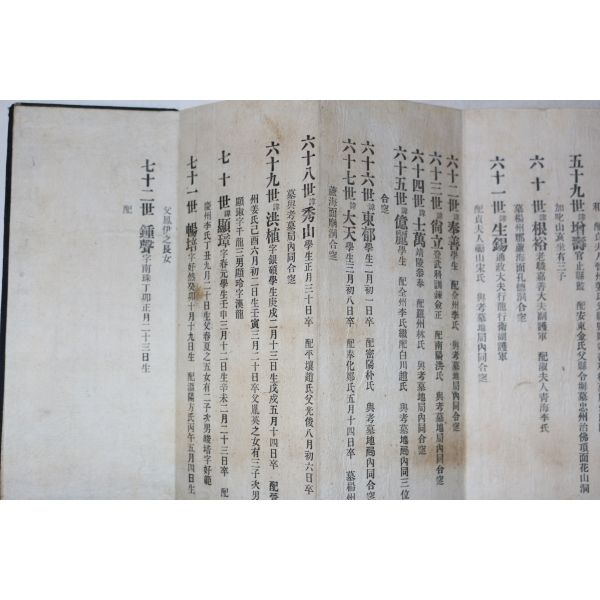 五十九世諱增壽官止縣監 配安東金氏父縣令
加叱山亥坐有三子
六十世諱根裕老職嘉善大夫副護軍 配淑夫人青海李氏
墓楊州郡蘆海面孔德洞合窆
六十一世諱生錫通政大夫行龍行衛副護軍
配貞夫人礪山宋氏 與考墓地局內同合窆
六十二世諱泰善學生 配全州李氏 與考墓地局內同合窆
六十三世諱尙立登武科訓鍊僉正 配南陽洪氏 與考墓地局內同合窆
六十四世諱士萬靖陵叅奉 配羅州林氏 與考墓地局內同合窆
六十五世諱億麗學生 配全州李氏 配白川趙氏 與考墓地局內同三位
合窆
六十六世諱東郁學生二月初一日卒 配密陽朴氏 與考墓地局內同合窆
六十七世諱大天學生三月初八日卒 配奉化鄭氏五月十四日卒 墓楊州
蘆海面 合窆
六十八世諱秀山學生正月三十日卒 配平壤趙氏父光後八月初六日卒
墓與考墓局內同合窆
六十九世諱洪植字銀碩學生庚戌二月十三日生戊戌五月十四日卒 配晉
州姜氏己酉六月初二日生壬寅三月二十日卒父鳳英之女有三子次男
顯淑字千龍三男顯玲字漢龍
七十世諱顯璋字春元學生壬申三月十二日生辛未二月二十三日卒 配
慶州李氏丁丑九月二十日生父春夏之五女有二子次男暖培字好範
七十一世暢培字好然癸卯十月十九日生 配溫陽方氏丙午五月四日生
父鳳伊之長女
七十二世鍾聲字南珠丁卯正月二十三日生
配